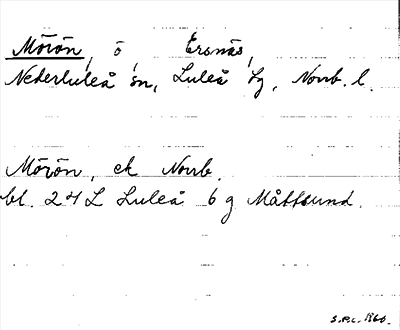 Mörön, ö Ersnäs,
Nederluleå sn, Luleå tg, Norrb. l.
Mörön, ek Norrb.
bl. 24 L Luleå 6 g Måttsund.